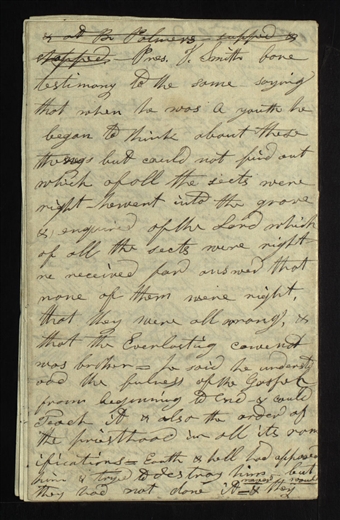 & at Br Palmers - supped &
stopped - Pres. J. Smith bore
testimony to the same saying
that when he was a youth he
began to think about these
things but could not find out
which of all the sects were
right - he went into the grove
& enquired of the Lord which
of all the sects were right
re received for answer that
none of them were right,
that they were all wrong, &
that the Everlasting covenant
was broken = he said he understood
the fulness of the Gospel
from beginning to End - & could
Teach it & also the order of
the priesthood in all its ram
ifications = Earth & hell had opposed
him & tryed to destroy him - but
they had not done it = & they
never would